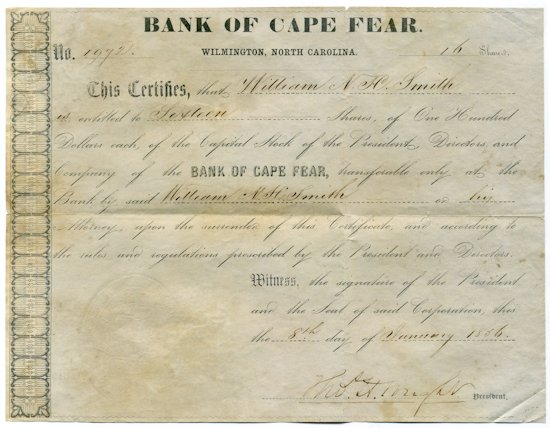 BANK OF CAPE FEAR.
WILMINGTON, NORTH CAROLINA.
No. 1972. 16 Shares.
This Certifies, that William N. H. Smith
is entitled to Sixteen Shares, of One Hundred
Dollars each, of the Capital Stock of the President, Directors, and
Company of the BANK OF CAPE FEAR, transferable only at the
Bank by said William N. H. Smith or his
Attorney, upon the surrender of this Certificate, and according to
the rules and regulations prescribed by the President and Directors.
Witness, the signature of the President
and the Seal of said Corporation, this
the 8th day of January 1856
Tho. H. Wright President.